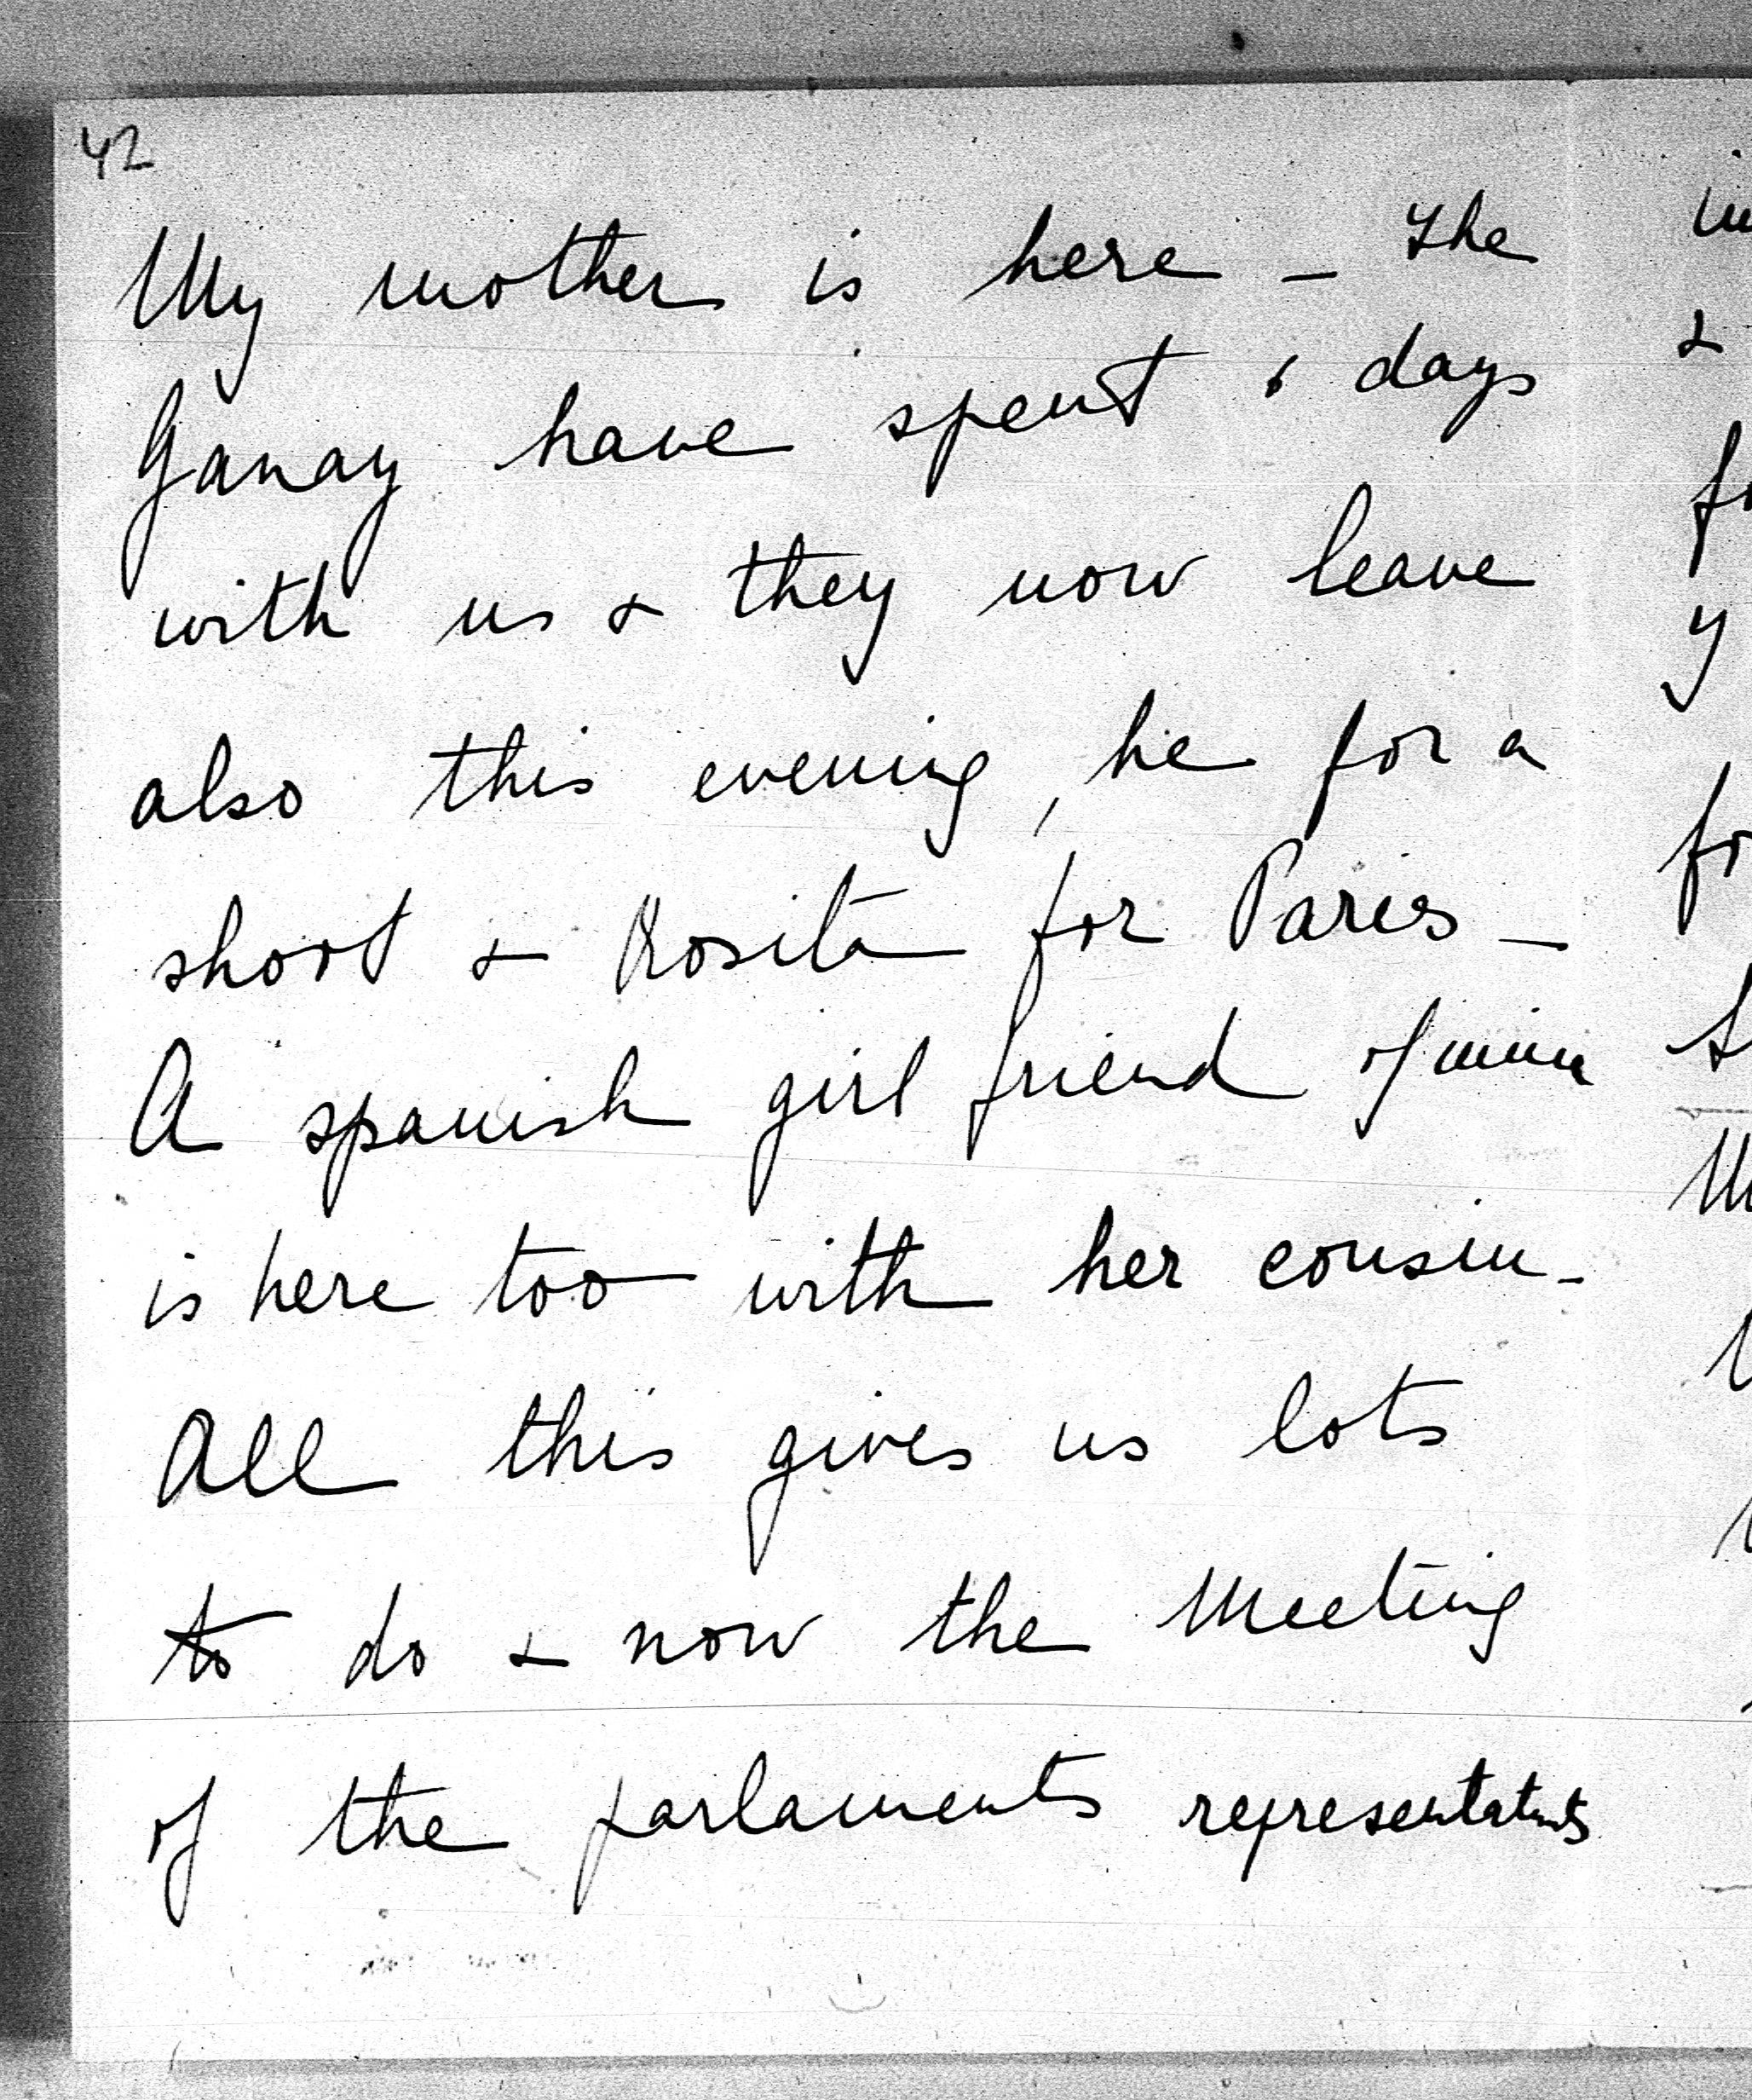 42
My mother is here - The
Ganay have spent 6 days
with us & they now leave
also this evening, he for a
shoot & Rosita for Paris -
A spanish girl friend of mine
is here too with her cousin -
All this gives us lots
to do & now the Meeting
of the parlaments